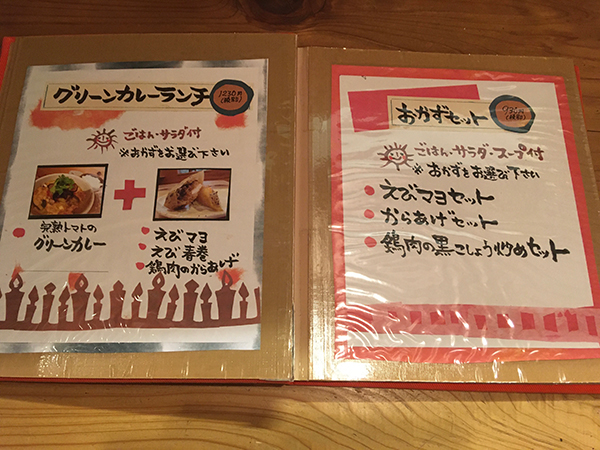 グリーンカレーランチ
1230円
(税別)
ごはん・サラダ付
※おかずをお選び下さい
完熟トマトの
グリーンカレー
えびマヨ
えび春巻
鶏肉のからあげ
おかずセット
(税別)
ごはん・サラダ・スープ付
※おかずをお選び下さい
えびマヨセット
からあげセット
鶏肉の黒こしょう炒めセット